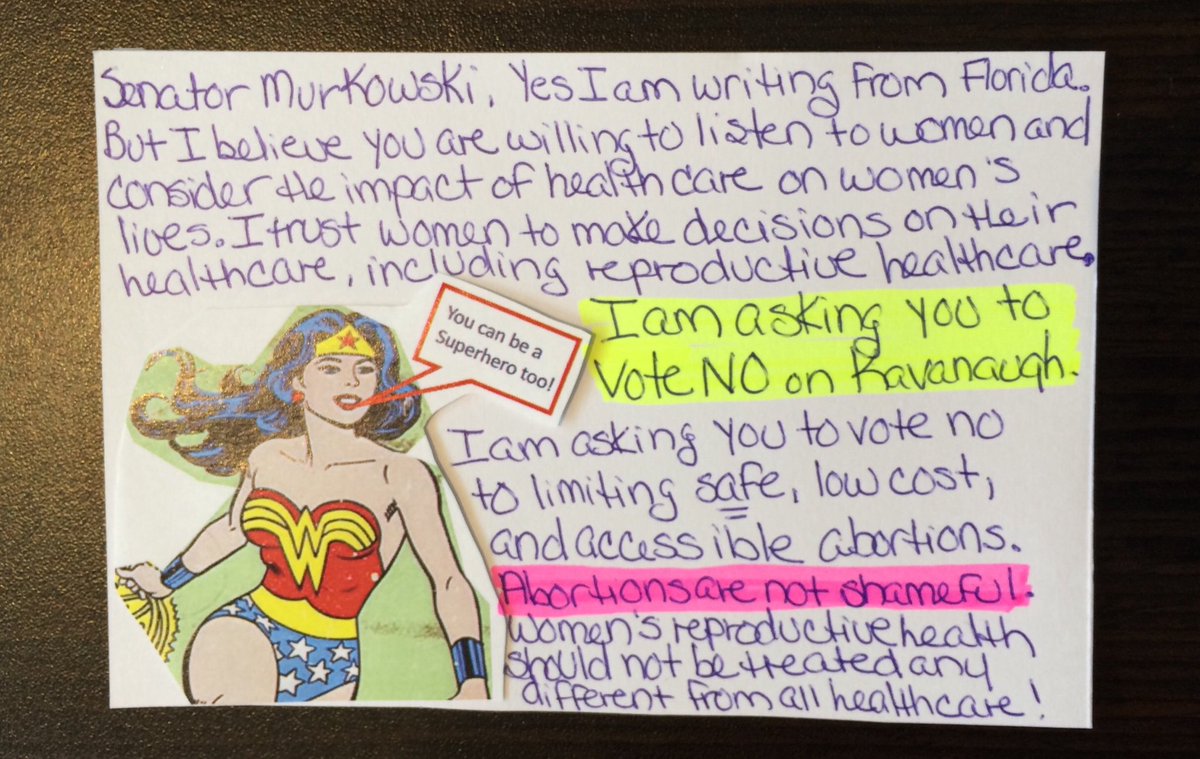 Senator Murkowski, Yes I am writing from Florida.
But I believe you are willing to listen to women and
consider the impact of health care on women's
lives. I trust women to make decisions on their
healthcare, including reproductive healthcare.
You can be a
Superhero too!
I am asking you to
Vote NO on Kavanaugh.
I am asking you to vote no
to limiting safe, low cost,
and accessible abortions.
Abortions are not shameful.
Women's reproductive health
should not be treated any
different from all healthcare!
W